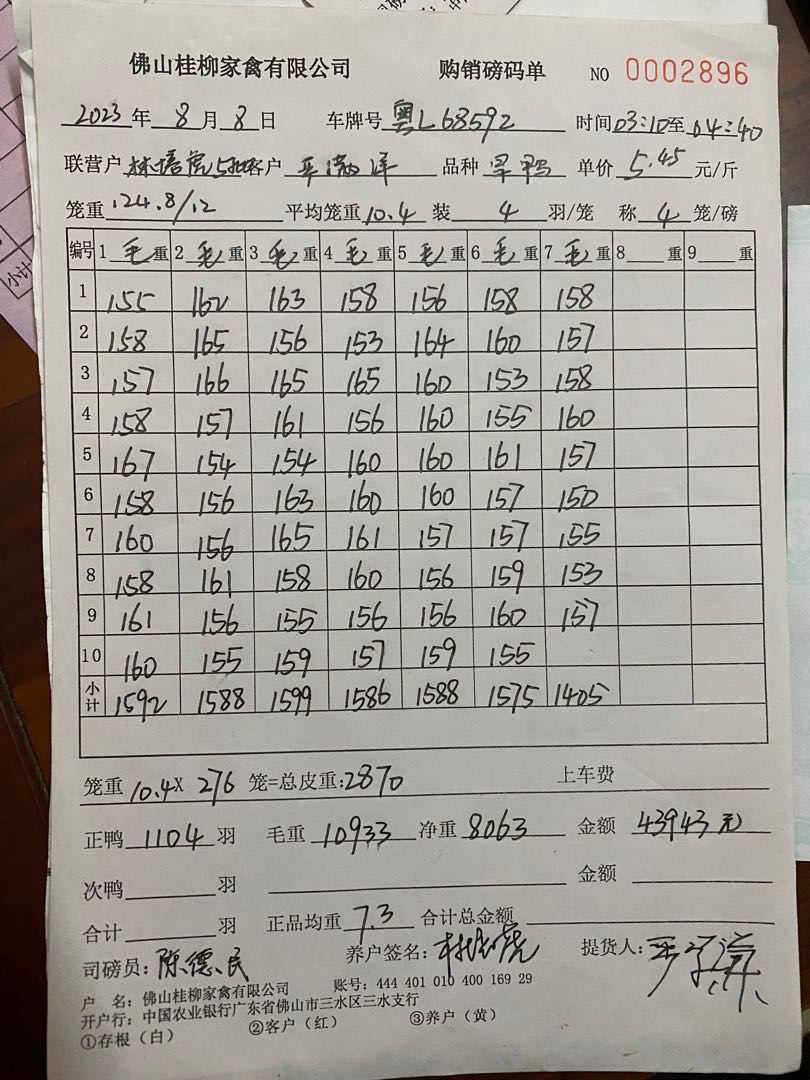 佛山桂柳家禽有限公司 购销磅码单 NO 0002896
2023年 8月 8日 车牌号 粤L68592 时间 03:10至 04:40
联营户 林 虎 客户 品种 旱鸭 单价 5.45 元/斤
笼重 124.8/12 平均笼重 10.4 装 4 羽/笼 称 4 笼/磅
编号 1 毛 重 2 毛 重 3 毛 重 4 毛 重 5 毛 重 6 毛 重 7 毛 重 8 重 9 重
1 155 162 163 158 156 158 158
2 158 165 156 153 164 160 157
3 157 166 165 165 160 153 158
4 158 157 161 156 160 155 160
5 167 154 154 160 160 161 157
6 158 156 163 160 160 157 150
7 160 156 165 161 157 157 155
8 158 161 158 160 156 159 153
9 161 156 155 156 156 160 157
10 160 155 159 157 159 155
小计 1592 1588 1599 1586 1588 1575 1405
笼重 10.4X 276 笼=总皮重:2870 上车费
正鸭 1104 羽 毛重 10933 净重 8063 金额 43943元
次鸭 羽 金额
合计 羽 正品均重 7.3 合计总金额
司磅员: 陈德民 养户签名: 林 虎 提货人:
户 名: 佛山桂柳家禽有限公司 账号: 444 401 010 400 169 29
开户行: 中国农业银行广东省佛山市三水区三水支行
①存根(白) ②客户(红) ③养户(黄)
小计